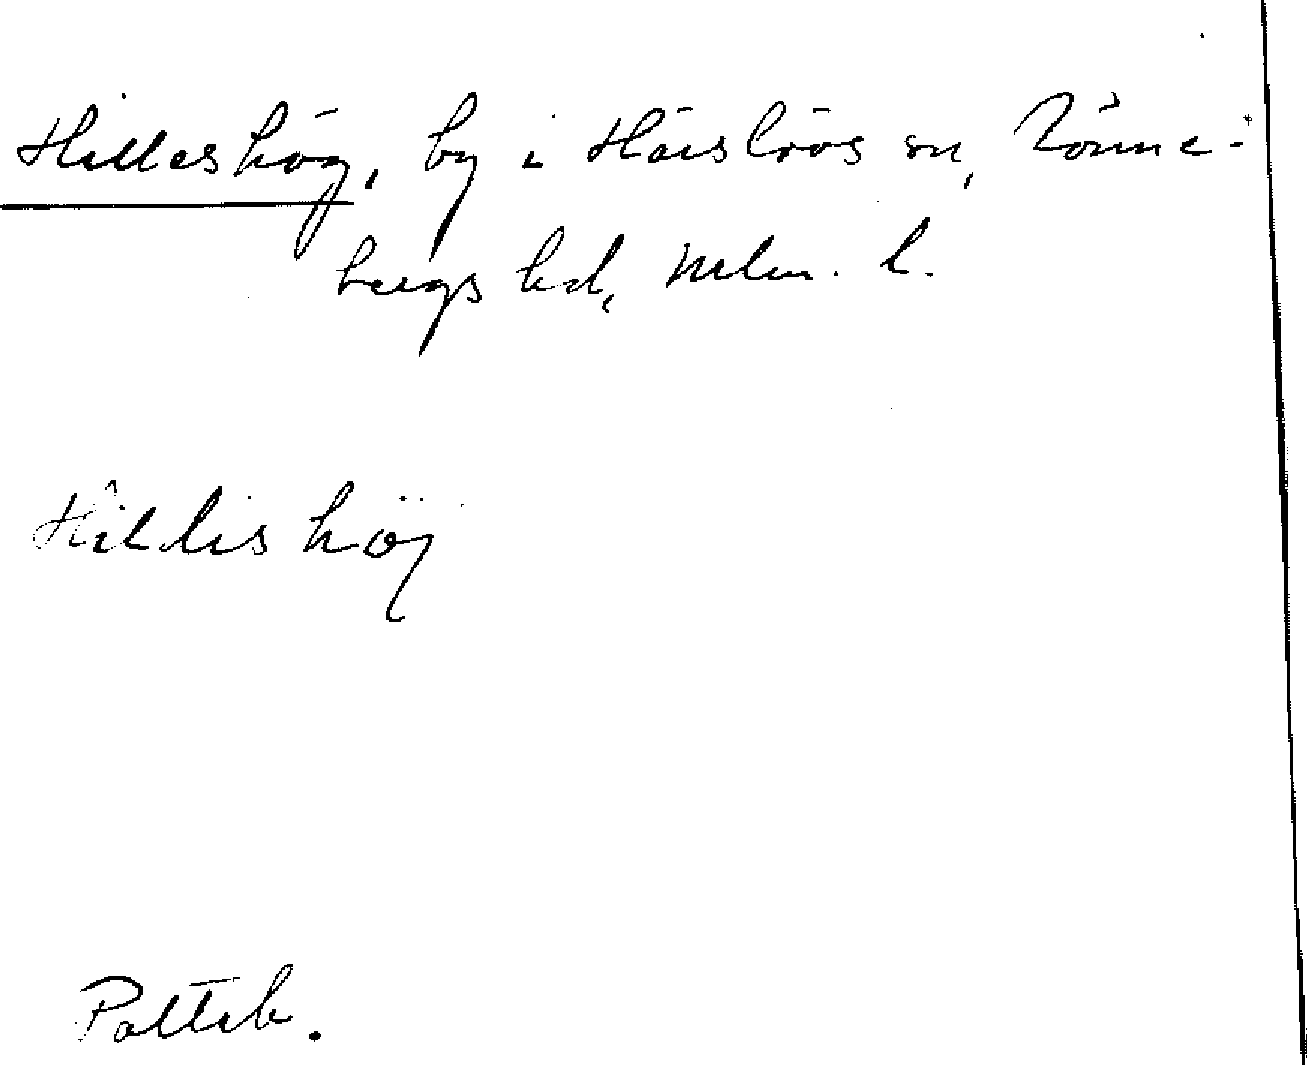 Hilleshög, by i Härslövs sn, Rönne-
bergs hd, Mlm. l.
Hilleshöj